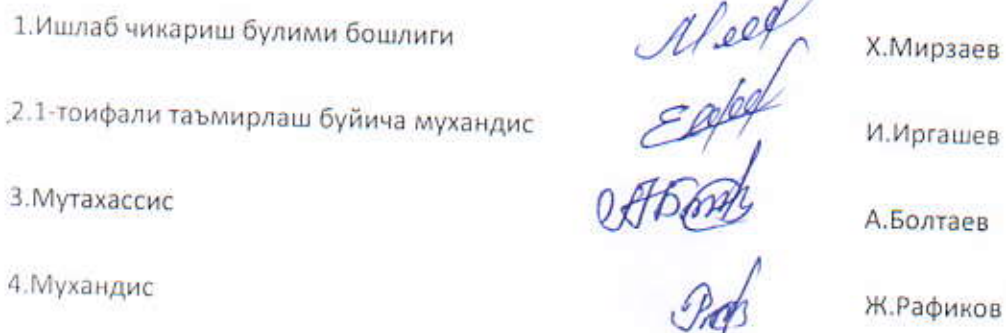 1.Ишлаб чикариш булими бошлиги Х.Мирзаев
2.1-тоифали таъмирлаш буйича мухандис И.Иргашев
3.Мутахассис А.Болтаев
4.Мухандис Ж.Рафиков